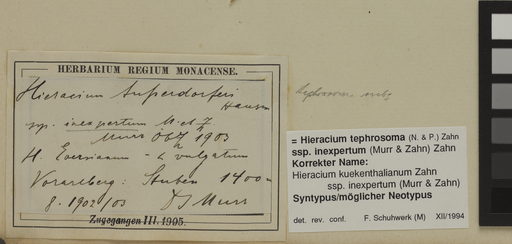 HERBARIUM REGIUM MONACENSE.
Hieracium
Hausm
ssp. inexpertum M. et Z
Murr ÖbZ 1903
H. - vulgatum
Vorarlberg: Stuben 1400 m
8. 1902/03 Murr
Zugegangen III. 1905.
tephrosoma
= Hieracium tephrosoma (N. & P.) Zahn
ssp. inexpertum (Murr & Zahn) Zahn
Korrekter Name:
Hieracium kuekenthalianum Zahn
ssp. inexpertum (Murr & Zahn)
Syntypus/möglicher Neotypus
det. rev. conf. F. Schuhwerk (M) XII/1994